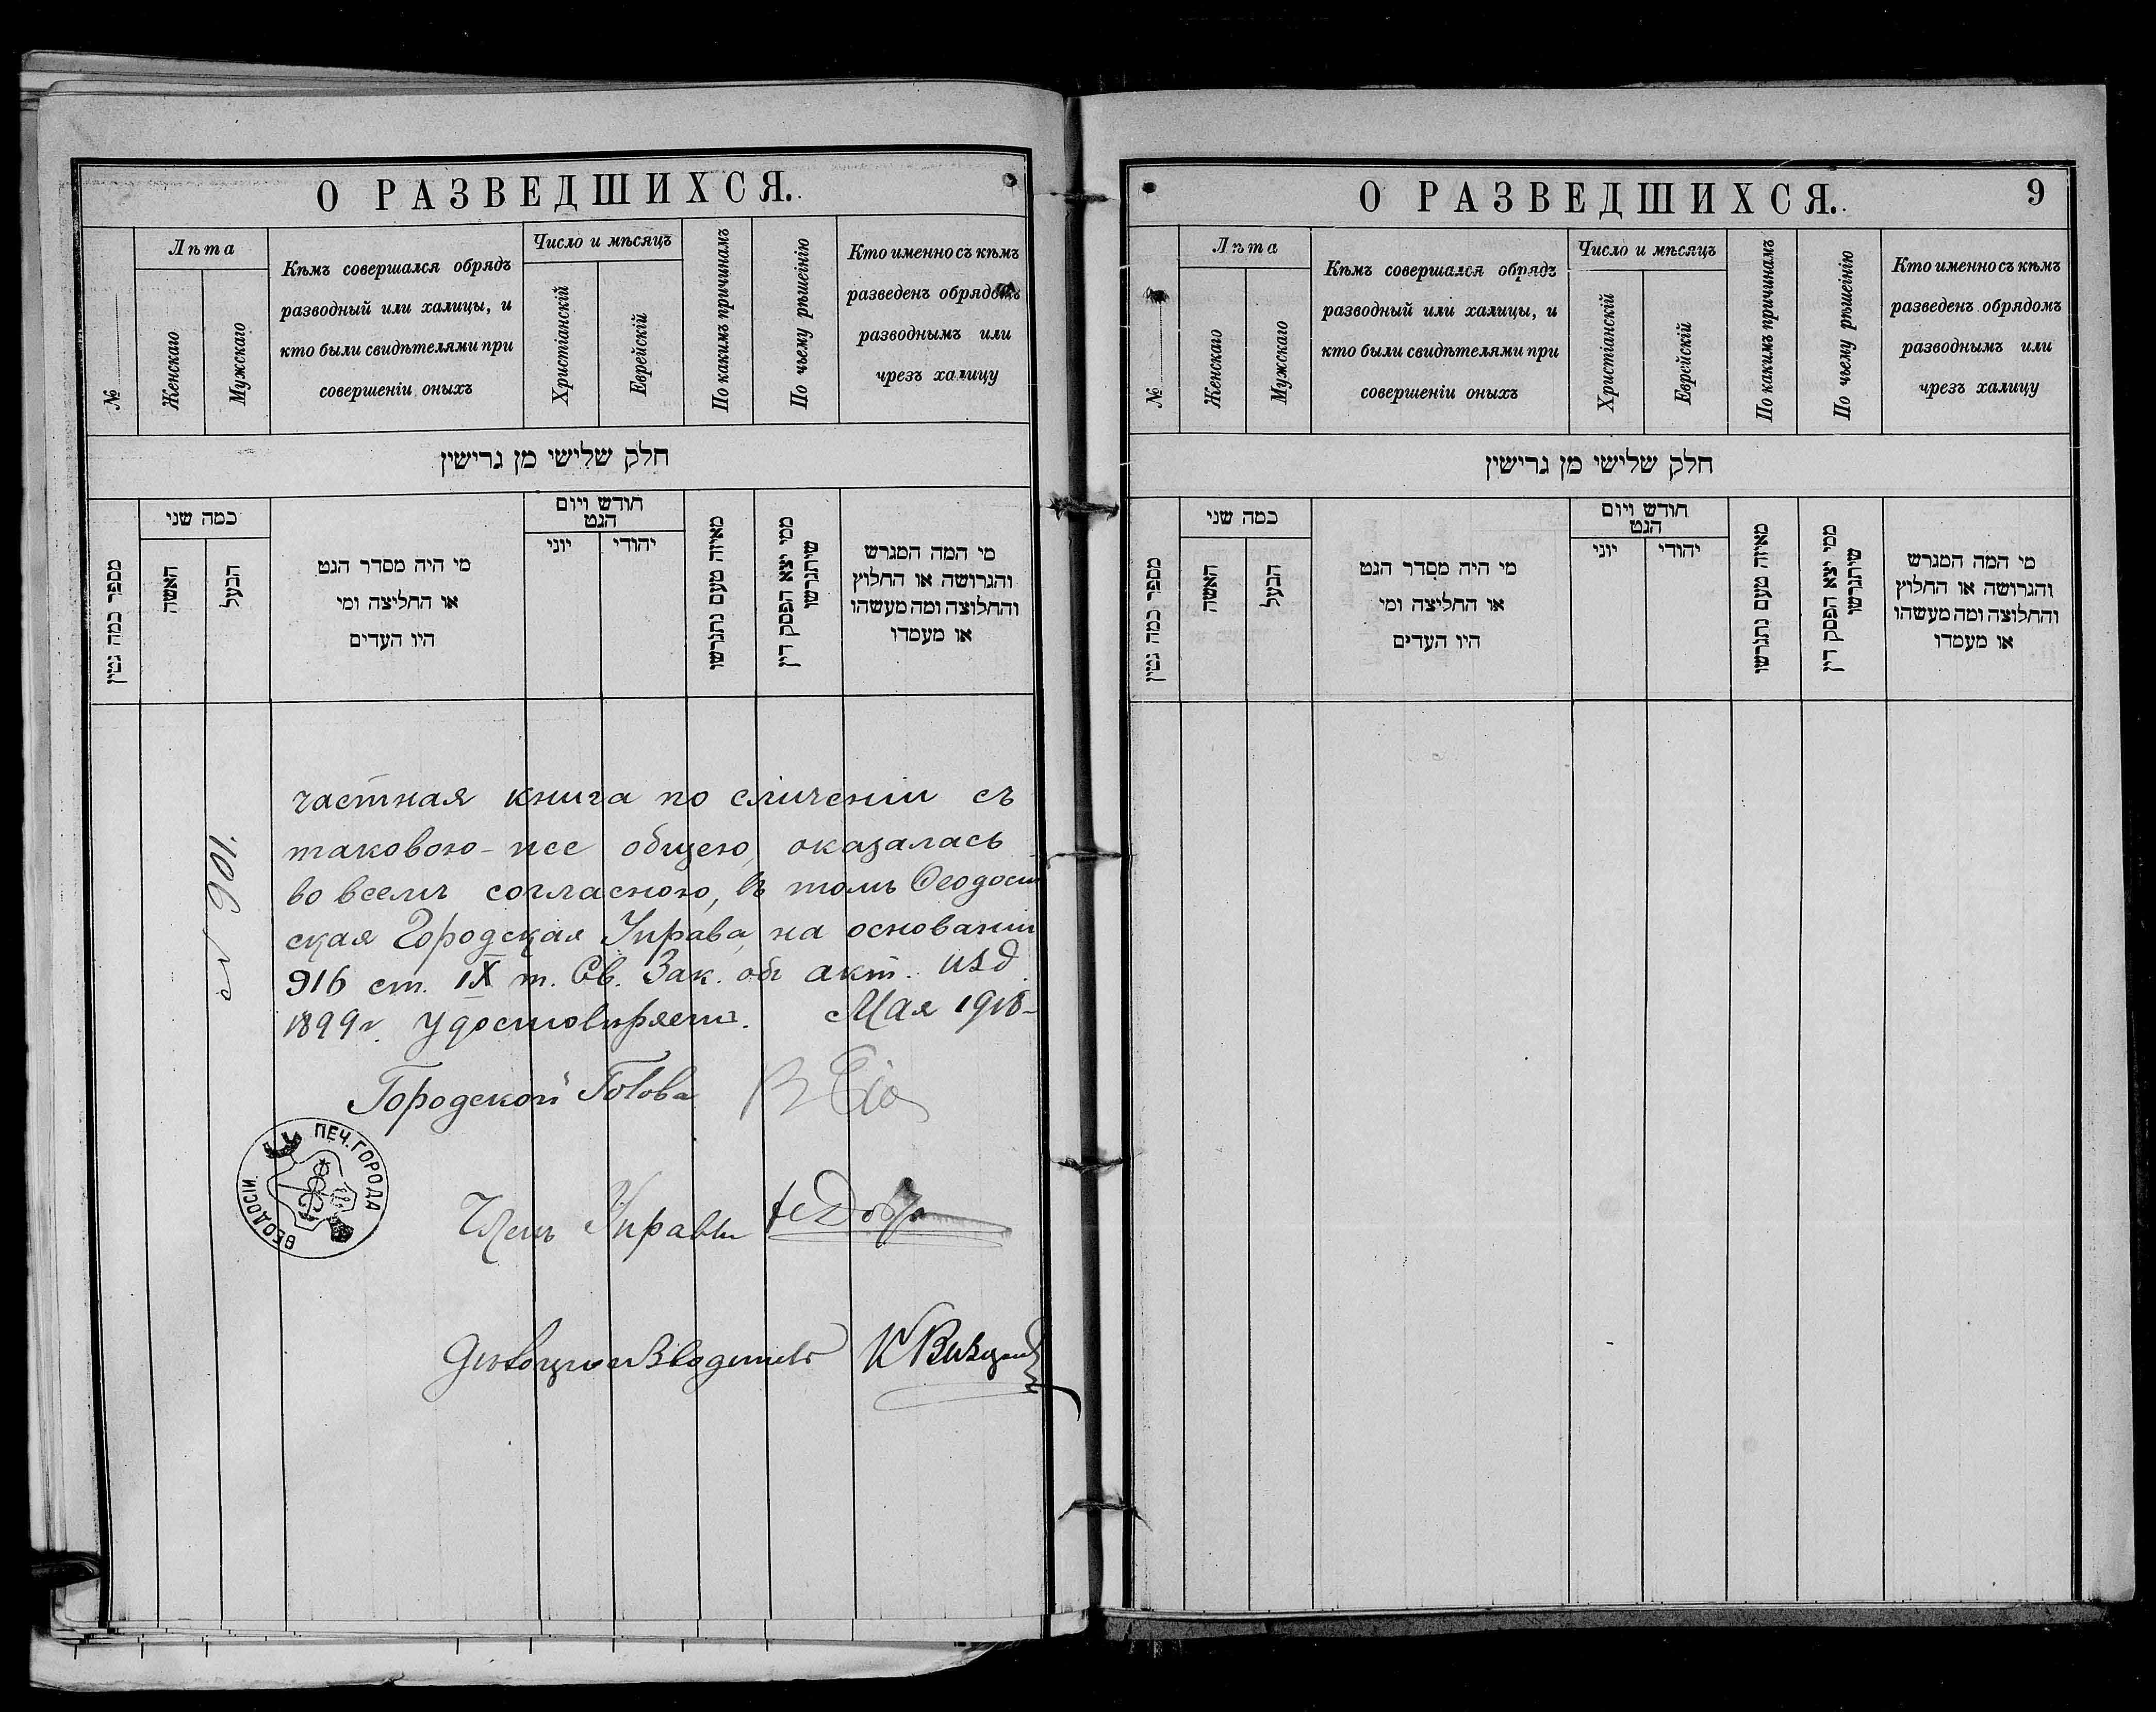 О РАЗВЕДШИХСЯ.
№
Лѣта
Женскаго
Мужскаго
Кѣмъ совершался обрядъ
разводный или халицы, и
кто были свидѣтелями при
совершеніи оныхъ
Число и мѣсяцъ
Христіанскій
Еврейскій
По какимъ причинамъ
По чьему рѣшеінію
Кто именно съ кѣмъ
разведенъ обрядомъ
разводнымъ или
чрезъ халицу
חלק שלישי מן גרישין
מספר כמה גטין
כמה שני
האשה
הבעל
מי היה מסדר הגט
או החליצה ומי
היו העדים
חודש ויום
הגט
יוני
יהודי
מאיזה טעם נתגרשו
ממי יצא הפסק דין
שיתגרשו
מי המה המגרש
והגרושה או החלוץ
והחלוצה ומה מעשהו
או מעמדו
частная книга по сличеніи съ
таковою-же общею, оказалась
во всемъ согласною, въ томъ Ѳеодосій
ская Городская Управа, на основаніи
916 ст. IX т. Св. Зак. объ акт. изд.
1899 г. удостовѣряетъ. Мая 1918
№ 901.
Городской Голова
ПЕЧ. ГОРОДА
ѲЕОДОСІИ.
Членъ Управы
О РАЗВЕДШИХСЯ.
9
№
Лѣта
Женскаго
Мужскаго
Кѣмъ совершался обрядъ
разводный или халицы, и
кто были свидѣтелями при
совершеніи оныхъ
Число и мѣсяцъ
Христіанскій
Еврейскій
По какимъ причинамъ
По чьему рѣшеінію
Кто именно съ кѣмъ
разведенъ обрядомъ
разводнымъ или
чрезъ халицу
חלק שלישי מן גרישין
מספר כמה גטין
כמה שני
האשה
הבעל
מי היה מסדר הגט
או החליצה ומי
היו העדים
חודש ויום
הגט
יוני
יהודי
מאיזה טעם נתגרשו
ממי יצא הפסק דין
שיתגרשו
מי המה המגרש
והגרושה או החלוץ
והחלוצה ומה מעשהו
או מעמדו